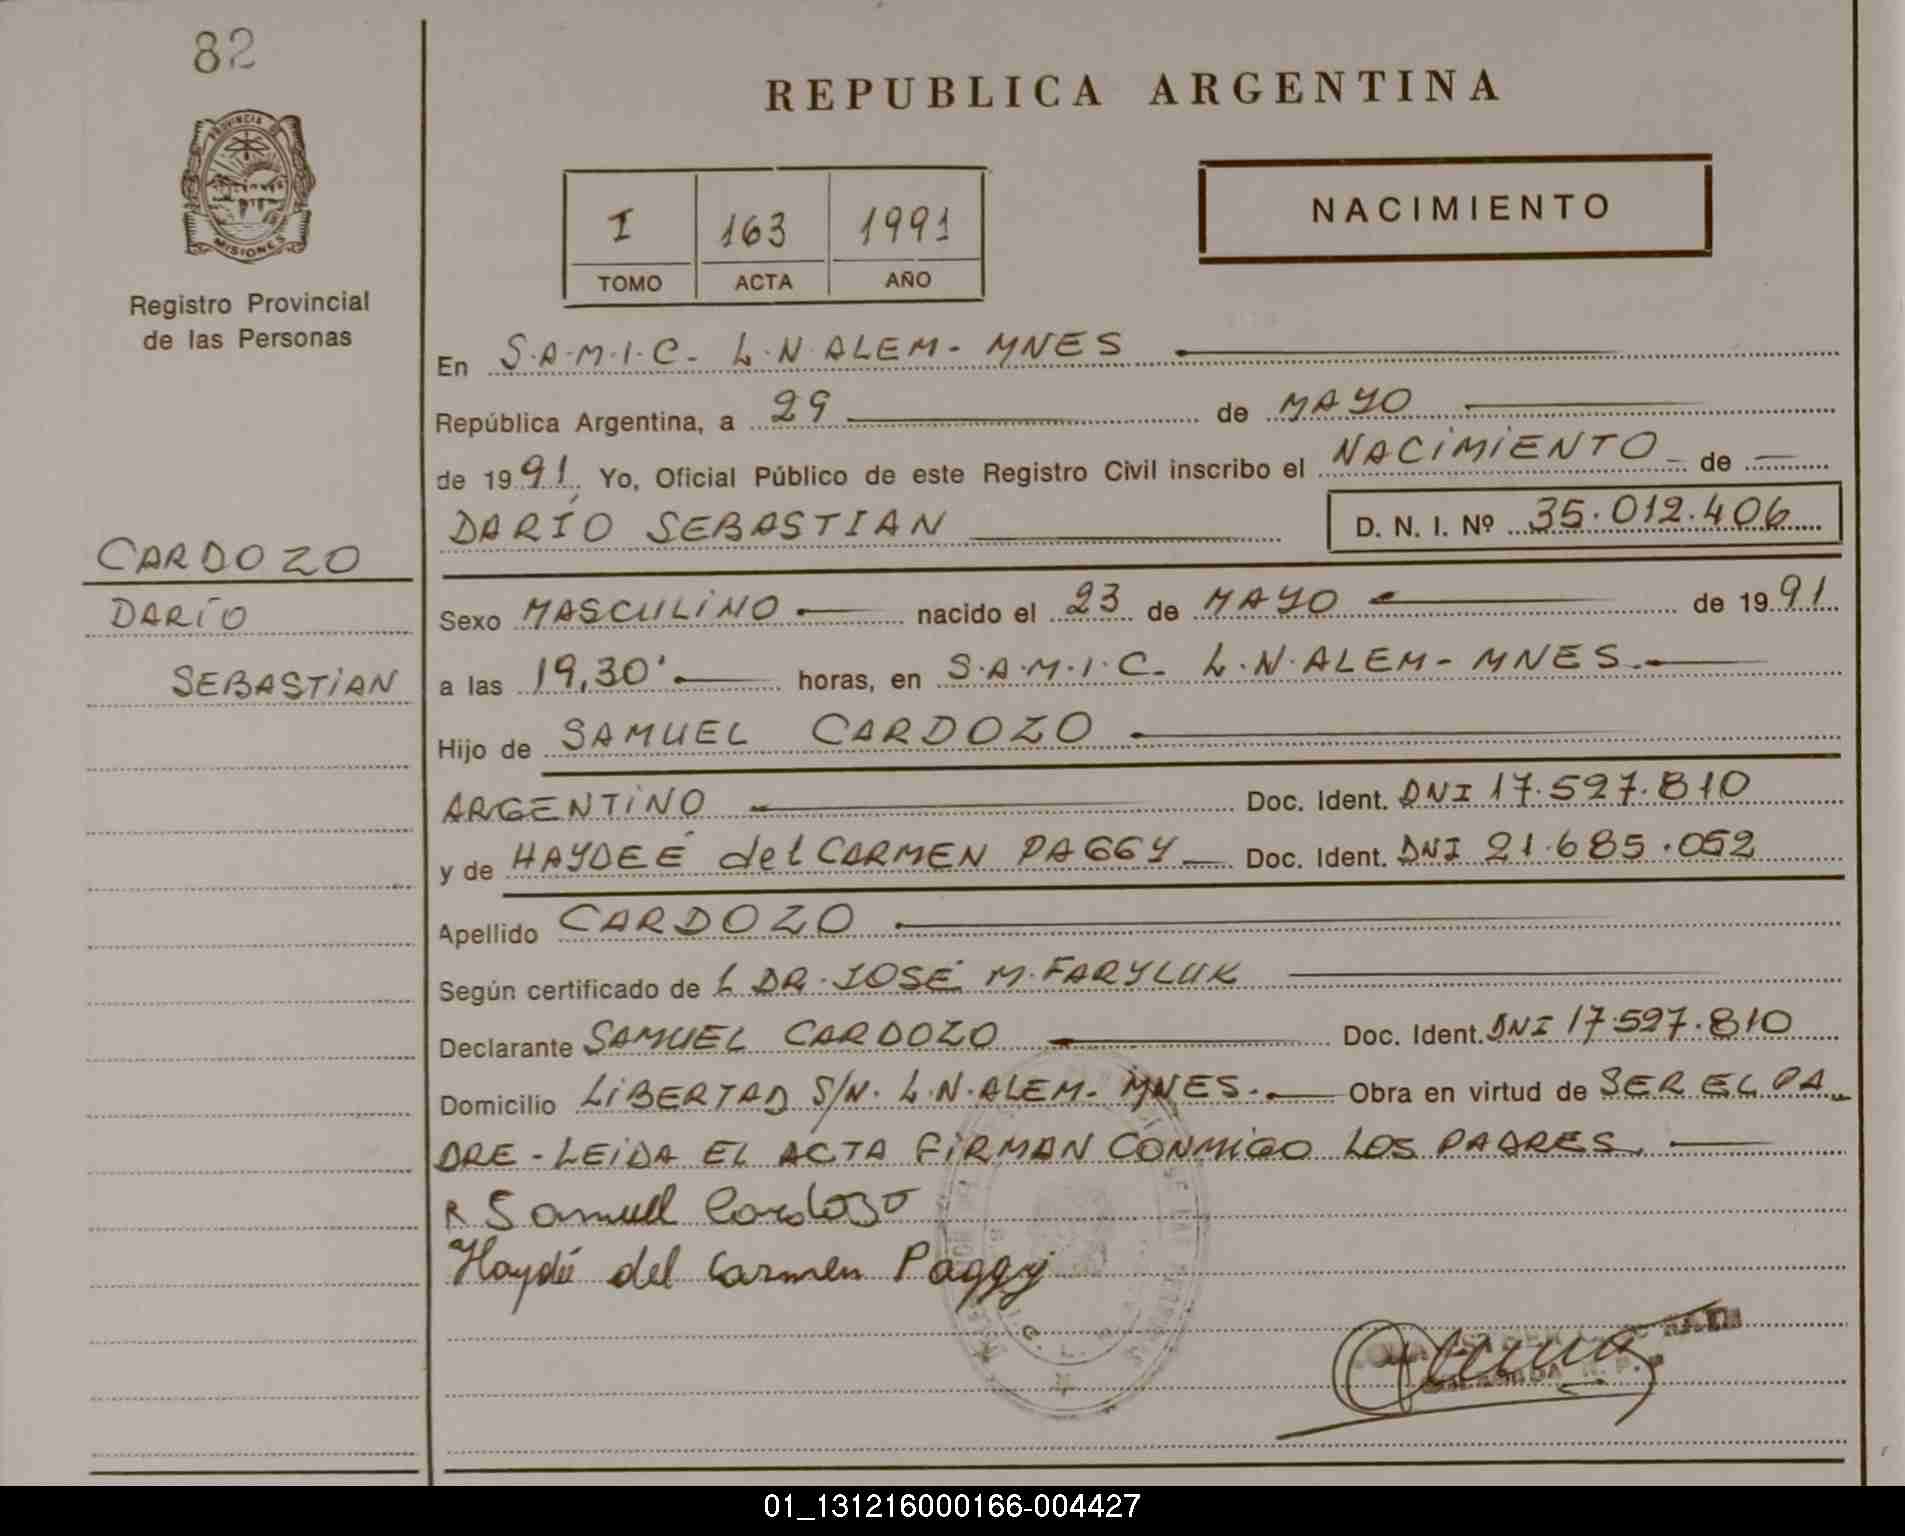 82
REPUBLICA ARGENTINA
PROVINCIA DE
MISIONES
Registro Provincial
de las Personas
I 163 1991
TOMO ACTA AÑO
NACIMIENTO
En S.A.M.I.C. L.N.ALEM - MNES
República Argentina, a 29 de MAYO
de 1991. Yo, Oficial Público de este Registro Civil inscribo el NACIMIENTO de
DARÍO SEBASTIAN D. N. I. Nº 35.012.406
CARDOZO
DARÍO
SEBASTIAN
Sexo MASCULINO nacido el 23 de MAYO de 1991
a las 19,30' horas, en S.A.M.I.C. L.N.ALEM - MNES.
Hijo de SAMUEL CARDOZO
ARGENTINO Doc. Ident. DNI 17.597.810
y de HAYDEÉ del CARMEN PAGGY Doc. Ident. DNI 21.685.052
Apellido CARDOZO
Según certificado de L DR. JOSÉ M. FARYLUK
Declarante SAMUEL CARDOZO Doc. Ident. DNI 17.597.810
Domicilio LIBERTAD S/N. L.N.ALEM - MNES. Obra en virtud de SER EL PA
DRE - LEIDA EL ACTA FIRMAN CONMIGO LOS PADRES.
R Samuel Cardozo
Haydé del Carmen Paggy
01_131216000166-004427